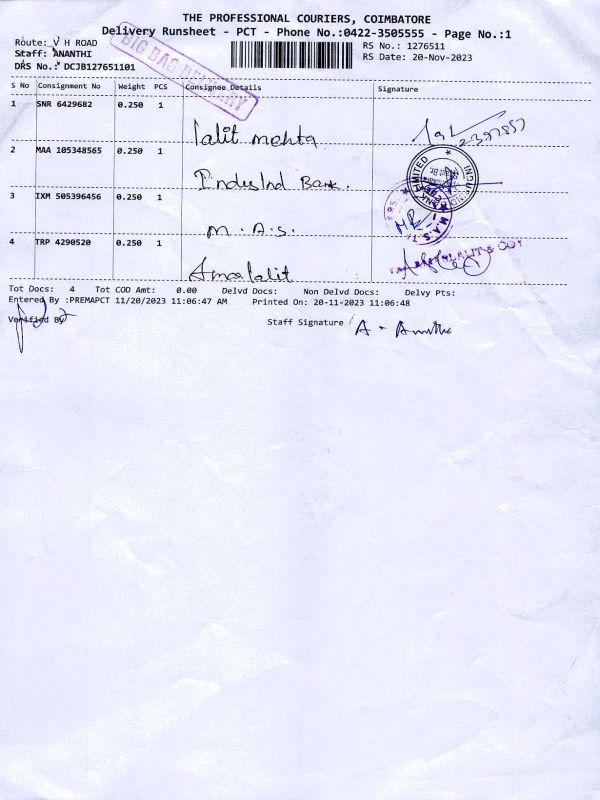 THE PROFESSIONAL COURIERS, COIMBATORE
Delivery Runsheet - PCT - Phone No.:0422-3505555 - Page No.:1
Route: V H ROAD
RS No.: 1276511
Staff: ANANTHI
RS Date: 20-Nov-2023
DRS No.: DCJB127651101
BIG BAG DELIVERY
S No Consignment No Weight PCS Consignee Details Signature
1 SNR 6429682 0.250 1
lalit mehta
2 MAA 105348565 0.250 1
IndusInd Bank.
3 IXM 505396456 0.250 1
M.A.S.
4 TRP 4290520 0.250 1
Tot Docs: 4 Tot COD Amt: 0.00 Delvd Docs: Non Delvd Docs: Delvy Pts:
Entered By :PREMAPCT 11/20/2023 11:06:47 AM Printed On: 20-11-2023 11:06:48
Verified By
Staff Signature